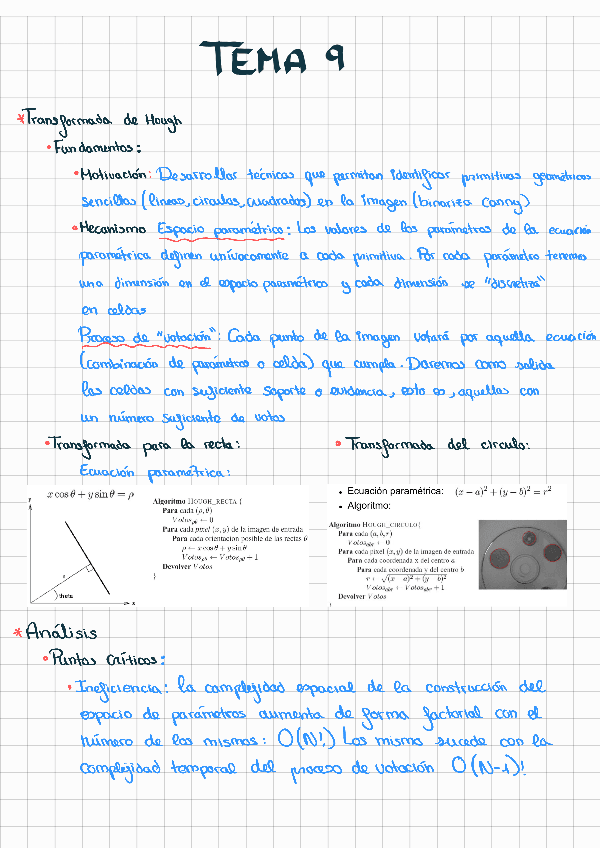 TEMA 9
* Transformada de Hough
• Fundamentos:
• Motivación: Desarrollar técnicas que permitan identificar primitivas geométricas
sencillas (líneas, círculos, cuadrados) en la imagen (binariza canny)
• Mecanismo Espacio paramétrico: Los valores de los parámetros de la ecuación
paramétrica definen unívocamente a cada primitiva. Por cada parámetro tenemos
una dimensión en el espacio paramétrico y cada dimensión se "discretiza"
en celdas
Proceso de "votación": Cada punto de la imagen votará por aquella ecuación
(combinación de parámetros o celda) que cumpla. Daremos como salida
las celdas con suficiente soporte o evidencia, esto es, aquellas con
un número suficiente de votos
• Transformada para la recta:
Ecuación paramétrica:
x cos θ + y sin θ = ρ
y
r
theta
x
Algoritmo HOUGH_RECTA {
Para cada (ρ, θ)
Votosρθ ← 0
Para cada pixel (x, y) de la imagen de entrada
Para cada orientacion posible de las rectas θ
ρ ← x cos θ + y sin θ
Votosρθ ← Votosρθ + 1
Devolver Votos
}
• Transformada del círculo:
• Ecuación paramétrica: (x − a)² + (y − b)² = r²
• Algoritmo:
Algoritmo HOUGH_CIRCULO{
Para cada (a, b, r)
Votosabr ← 0
Para cada pixel (x, y) de la imagen de entrada
Para cada coordenada x del centro a
Para cada coordenada y del centro b
r ← √(x − a)² + (y − b)²
Votosabr ← Votosabr + 1
Devolver Votos
}
* Análisis
• Puntos Críticos:
• Ineficiencia: la complejidad espacial de la construcción del
espacio de parámetros aumenta de forma factorial con el
número de los mismos: O(N!) Los mismo sucede con la
complejidad temporal del proceso de votación O(N-1)!